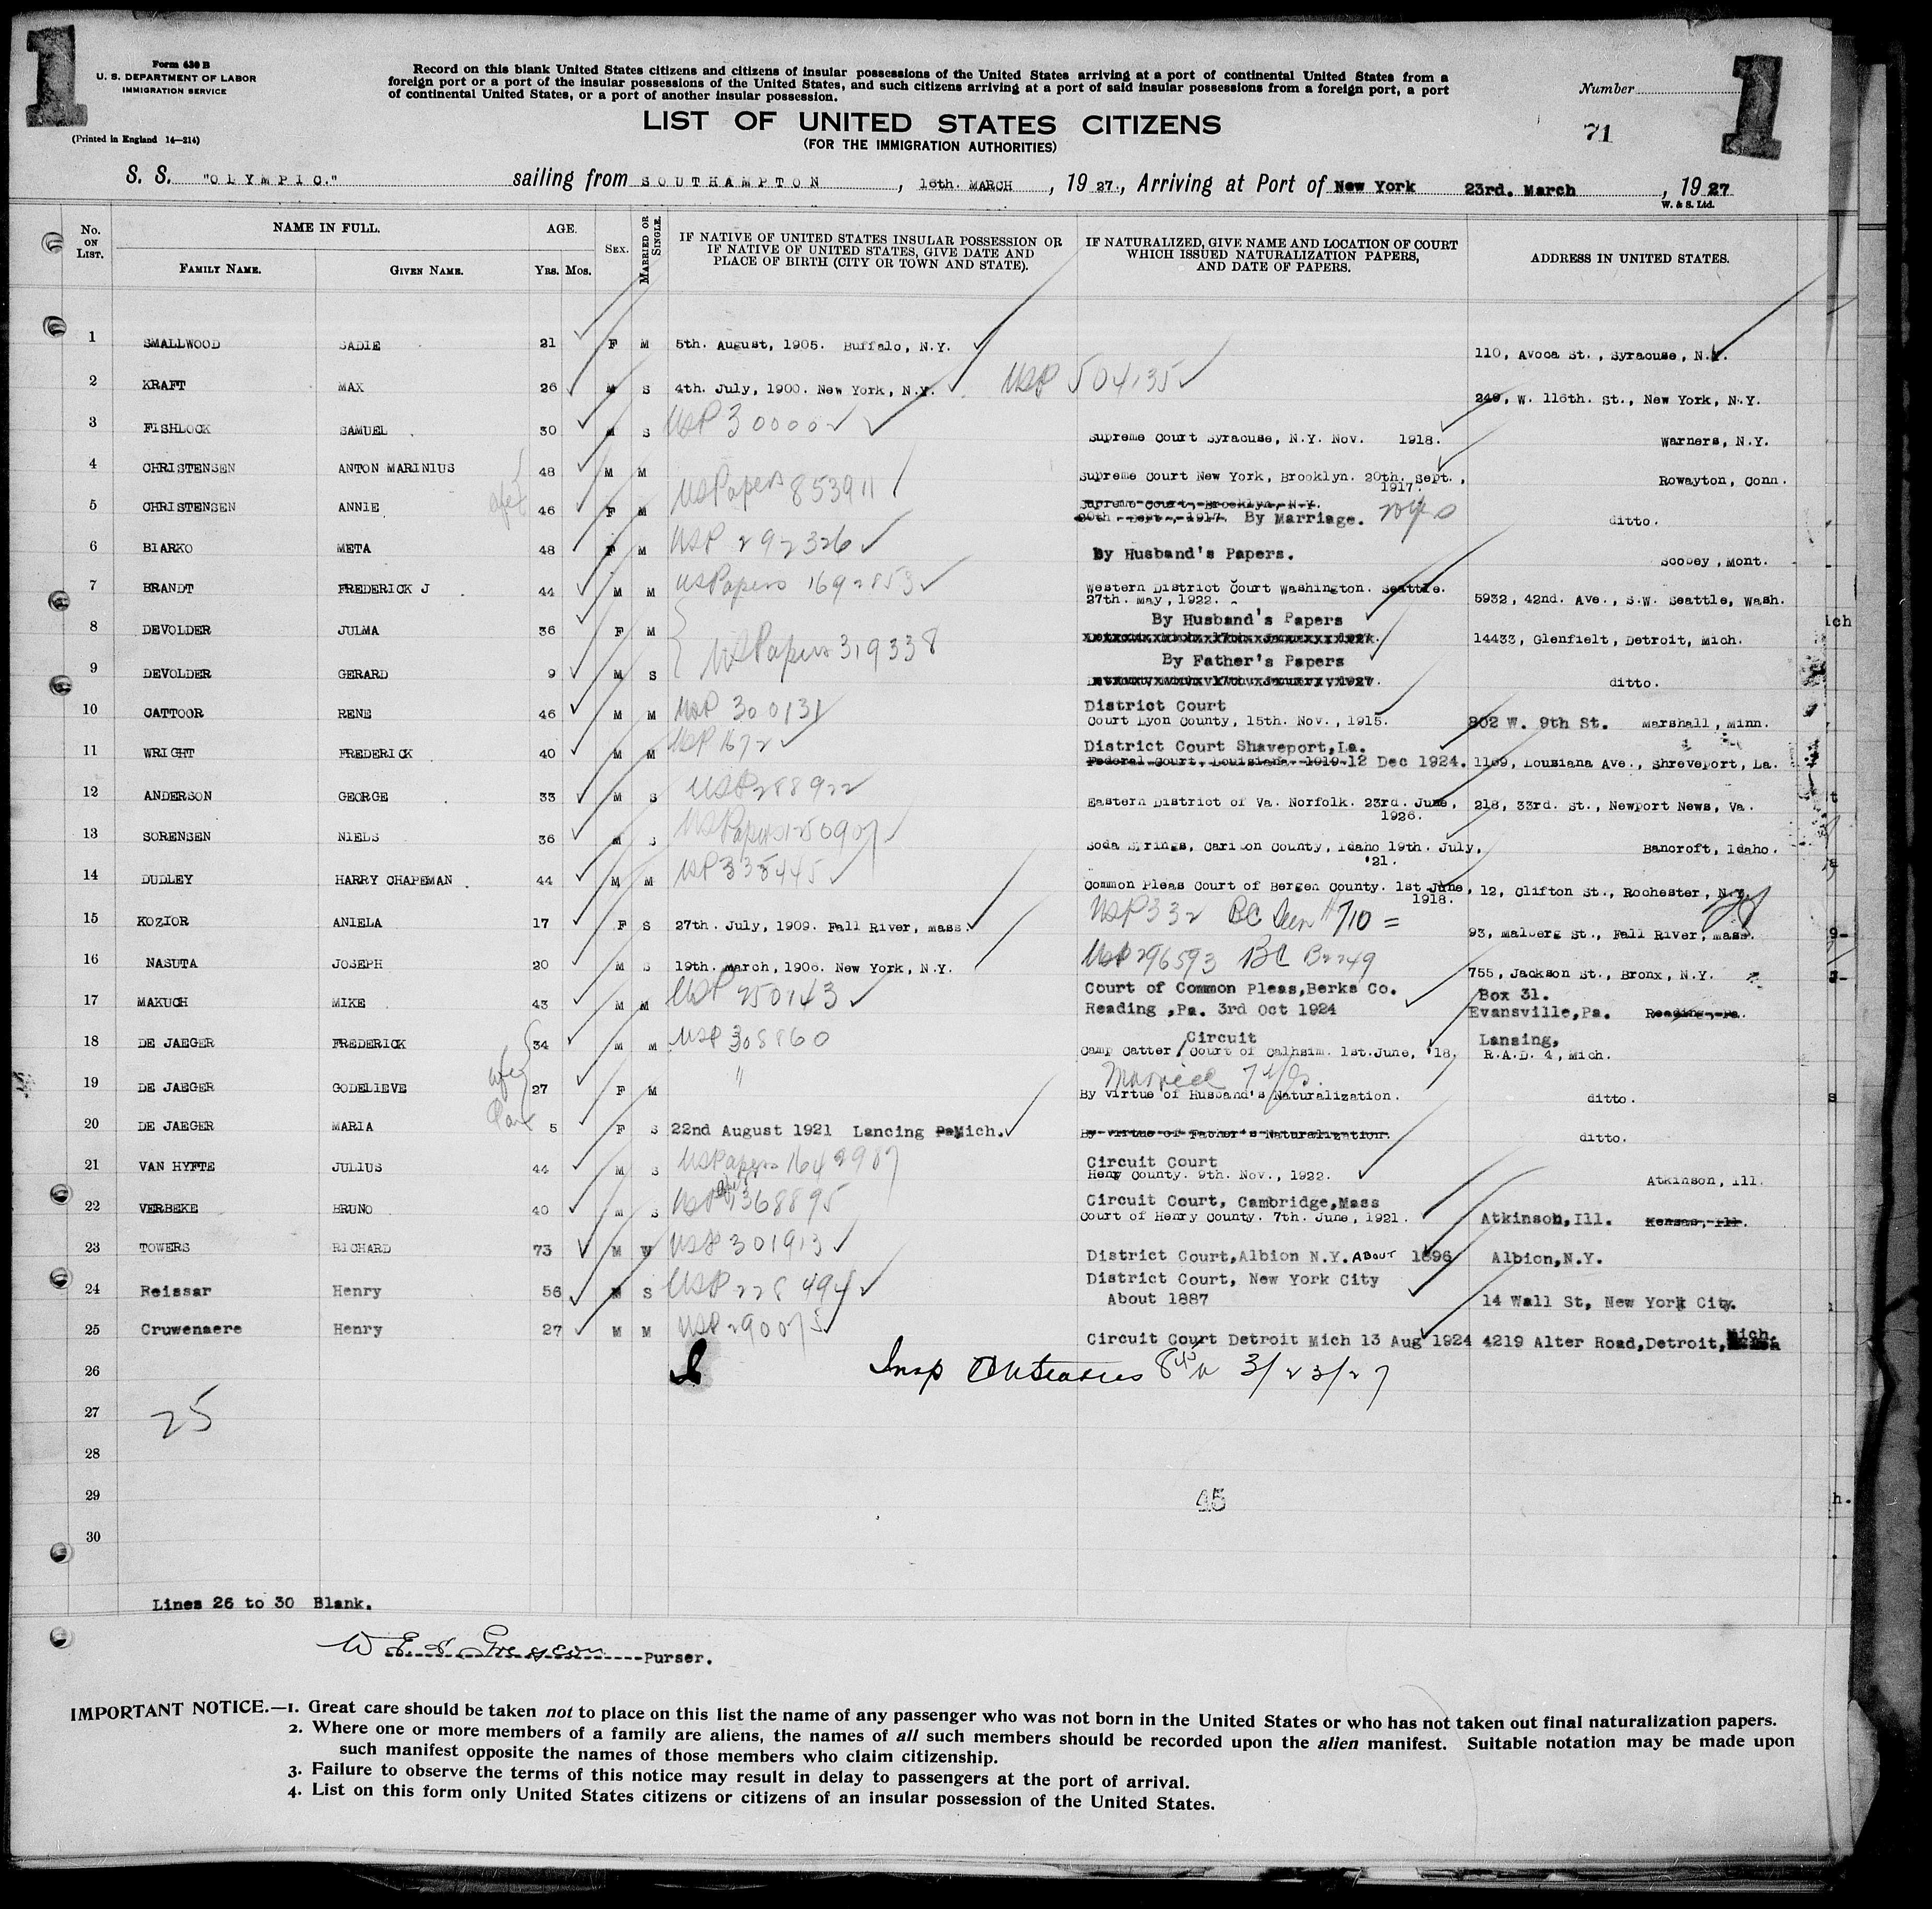 1
1
Form 630 B
U. S. DEPARTMENT OF LABOR
IMMIGRATION SERVICE
(Printed in England 14—214)
Record on this blank United States citizens and citizens of insular possessions of the United States arriving at a port of continental United States from a
foreign port or a port of the insular possessions of the United States, and such citizens arriving at a port of said insular possessions from a foreign port, a port
of continental United States, or a port of another insular possession.
Number
71
LIST OF UNITED STATES CITIZENS
(FOR THE IMMIGRATION AUTHORITIES)
S. S. "OLYMPIC." sailing from SOUTHAMPTON, 16th. MARCH, 1927., Arriving at Port of New York 23rd. March, 1927
W. & S. Ltd.
No. ON LIST. NAME IN FULL. FAMILY NAME. GIVEN NAME. AGE. YRS. MOS. SEX. MARRIED OR SINGLE. IF NATIVE OF UNITED STATES INSULAR POSSESSION OR IF NATIVE OF UNITED STATES, GIVE DATE AND PLACE OF BIRTH (CITY OR TOWN AND STATE). IF NATURALIZED, GIVE NAME AND LOCATION OF COURT WHICH ISSUED NATURALIZATION PAPERS, AND DATE OF PAPERS. ADDRESS IN UNITED STATES.
1 SMALLWOOD SADIE 21 F M 5th. August, 1905. Buffalo, N.Y. 110, Avoca St., Syracuse, N.Y.
2 KRAFT MAX 26 M S 4th. July, 1900. New York, N.Y. USP 504135 249, W. 116th. St., New York, N.Y.
3 FISHLOCK SAMUEL 30 M S USP 30000 Supreme Court Syracuse, N.Y. Nov. 1918. Warners, N.Y.
4 CHRISTENSEN ANTON MARINIUS 48 M M US Papers 853911 Supreme Court New York, Brooklyn. 20th. Sept., 1917. Rowayton, Conn.
5 CHRISTENSEN ANNIE 46 F M Supreme Court, Brooklyn, N.Y. 20th. Sept., 1917. By Marriage. ditto.
6 BIARKO META 48 F M USP 292326 By Husband's Papers. Scobey, Mont.
7 BRANDT FREDERICK J 44 M M US Papers 1692853 Western District Court Washington. Seattle. 27th. May, 1922. 5932, 42nd. Ave., S.W. Seattle, Wash.
8 DEVOLDER JULMA 36 F M US Papers 319338 By Husband's Papers 14433, Glenfielt, Detroit, Mich.
9 DEVOLDER GERARD 9 M S By Father's Papers ditto.
10 CATTOOR RENE 46 M M USP 300131 District Court Court Lyon County, 15th. Nov., 1915. 802 W. 9th St. Marshall, Minn.
11 WRIGHT FREDERICK 40 M M USP 1672 District Court Shaveport,La. Federal Court, Louisiana, 1919 12 Dec 1924. 1169, Lousiana Ave., Shreveport, La.
12 ANDERSON GEORGE 33 M S USP 288922 Eastern District of Va. Norfolk. 23rd. June, 1926. 218, 33rd. St., Newport News, Va.
13 SORENSEN NIELS 36 M S US Papers 1250907 Soda Springs, Caribon County, Idaho 19th. July, '21. Bancroft, Idaho.
14 DUDLEY HARRY CHAPEMAN 44 M M USP 335445 Common Pleas Court of Bergen County. 1st June, 1918. 12, Clifton St., Rochester, N.Y.
15 KOZIOR ANIELA 17 F S 27th. July, 1909. Fall River, Mass. USP 332 BC Seen #710 = 93, Malberg St., Fall River, Mass.
16 NASUTA JOSEPH 20 M S 19th. March, 1906. New York, N.Y. USP 296593 BC B2249 755, Jackson St., Bronx, N.Y.
17 MAKUCH MIKE 43 M M USP 250143 Court of Common Pleas,Berks Co. Reading ,Pa. 3rd Oct 1924 Box 31. Evansville,Pa. Reading, Pa.
18 DE JAEGER FREDERICK 34 M M USP 308860 Circuit Camp Catter Court of Calhsim. 1st.June, '18. Lansing, R.A.D. 4, Mich.
19 DE JAEGER GODELIEVE wfe 27 F M " Married 7 yrs. By Virtue of Husband's Naturalization. ditto.
20 DE JAEGER MARIA 5 F S 22nd August 1921 Lancing Mich. By Virtue of Father's Naturalization. ditto.
21 VAN HYFTE JULIUS 44 M S US Papers 1642987 Circuit Court Henry County. 9th. Nov., 1922. Atkinson, Ill.
22 VERBEKE BRUNO 40 M S USP 1368895 Circuit Court, Cambridge,Mass Court of Henry County. 7th. June, 1921. Atkinson,Ill. Kansas, Ill.
23 TOWERS RICHARD 73 M W USP 301913 District Court,Albion N.Y. ABOUT 1896 Albion,N.Y.
24 Reissar Henry 56 M S USP 228494 District Court, New York City About 1887 14 Wall St, New York City.
25 Cruwenaere Henry 27 M M USP 290075 Circuit Court Detroit Mich 13 Aug 1924 4219 Alter Road,Detroit, Mich.
26 Insp 3/23/27
27 25
28
29 45
30
Lines 26 to 30 Blank.
Purser.
IMPORTANT NOTICE.—1. Great care should be taken not to place on this list the name of any passenger who was not born in the United States or who has not taken out final naturalization papers.
2. Where one or more members of a family are aliens, the names of all such members should be recorded upon the alien manifest. Suitable notation may be made upon
such manifest opposite the names of those members who claim citizenship.
3. Failure to observe the terms of this notice may result in delay to passengers at the port of arrival.
4. List on this form only United States citizens or citizens of an insular possession of the United States.